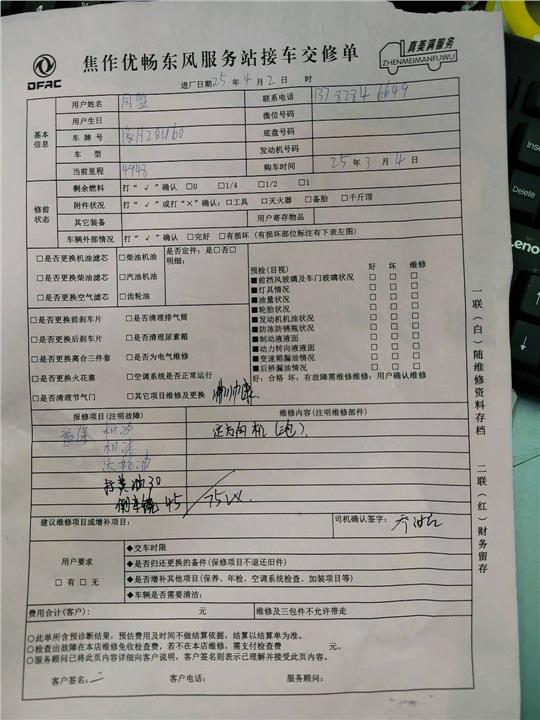 DFAC
焦作优畅东风服务站接车交修单
真美满服务
ZHENMEIMANFUWU
进厂日期 25 年 4 月 2 日 时
用户姓名 联系电话
用户生日 微信号码
基本信息
车牌号 底盘号码
车 型 发动机号码
当前里程 4948 购车时间 25 年 3 月 4 日
剩余燃料 打“√”确认 □0 □1/4 □1/2 □1
修前状态
附件状况 打“√”或打“×”确认:□工具 □灭火器 □备胎 □千斤顶
其它装备 用户寄存物品
车辆外部情况 打“√”确认 □完好 □有损坏(有损坏部位标注有下表左图)
□是否更换机油滤芯 □柴油机油 是否定件:是□否□
明细:
□是否更换柴油滤芯 □汽油机油
□是否更换空气滤芯 □齿轮油
预检(目视) 好 坏 维修
■前挡风玻璃及车门玻璃状况 □ □ □
■灯具情况 □ □ □
■油量状况 □ □ □
■轮胎状况 □ □ □
■发动机机油状况 □ □ □
■防冻防锈瓶状况 □ □ □
■制动液液面 □ □ □
■动力转向液液面 □ □ □
■变速箱漏油情况 □ □ □
■后桥漏油情况 □ □ □
好:合格 坏:有故障需维修维维:用户确认维修
□是否更换前刹车片 □是否清理排气筒
□是否更换后刹车片 □是否清理尿素箱
□是否更换离合三件套 □是否为电气维修
□是否更换火花塞 □空调系统是否正常运行
□是否清理节气门 □其它项目维修及更换
报修项目(注明故障) 维修内容(注明维修部件)
首保 机油
机滤
齿轮油
倒车镜 45
建议维修项目或增补项目: 司机确认签字:
用户要求
□有 □无
◆交车时限
◆是否归还更换的备件(保修项目不退还旧件)
◆是否增补其他项目(保养、年检、空调系统检查、加装项目等)
◆车辆是否需要清洁:
费用合计(客户): 元 维修及三包件不允许带走
○此单所含预诊断结果,预估费用及时间不做结算依据,结算以结算单为准。
○检查出故障在本店维修免收检查费,若不在本店维修,需支付检查费 元。
○服务顾问已将此页内容详细向客户说明,客户签名则表示已理解并接受此页内容。
客户签名: 客户电话: 服务顾问:
一联(白)随维修资料存档 二联(红)财务留存
Insert
Delete
Lenovo